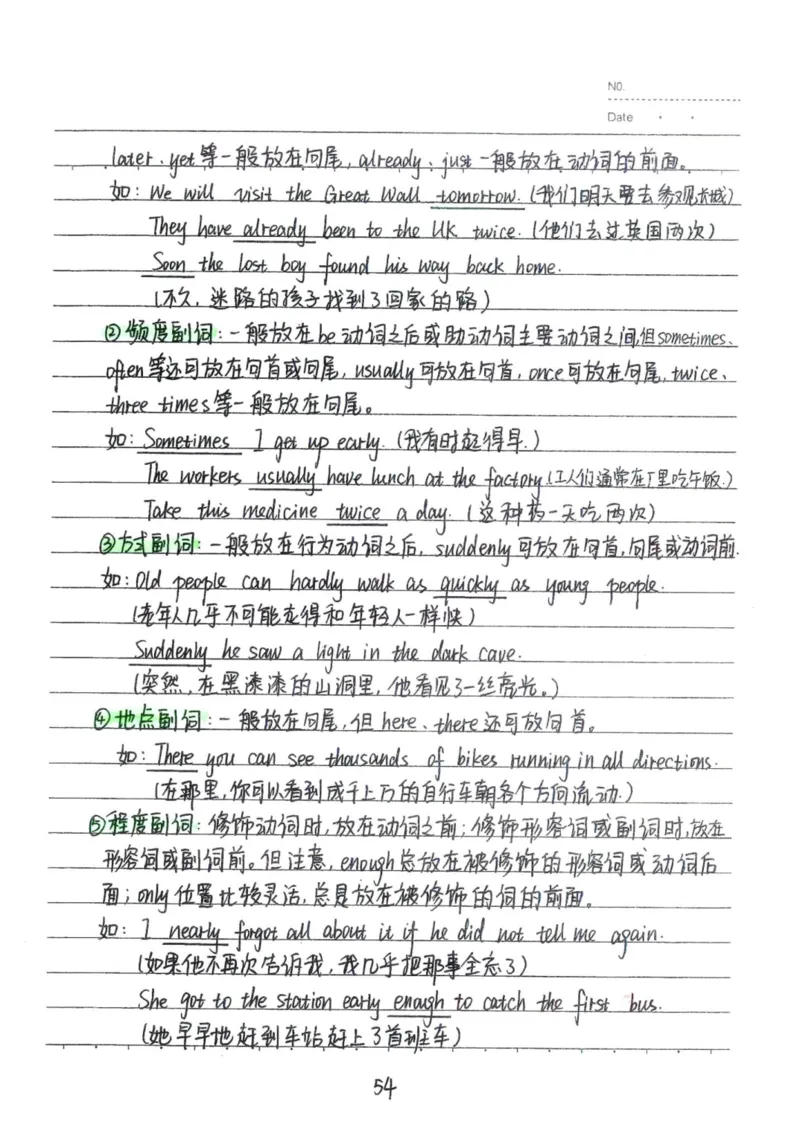 NO.
Date
later、yet等一般放在句尾，already、just一般放在动词的前面。
如：We will visit the Great Wall tomorrow.（我们明天要去参观长城）
They have already been to the UK twice.（他们去过英国两次）
Soon the lost boy found his way back home.
（不久，迷路的孩子找到了回家的路）
②频度副词：一般放在be动词之后或助动词主要动词之间，但sometimes、
often等还可放在句首或句尾，usually可放在句首，once可放在句尾，twice、
three times等一般放在句尾。
如：Sometimes I get up early.（我有时起得早.）
The workers usually have lunch at the factory.（工人们通常在厂里吃午饭.）
Take this medicine twice a day.（这种药一天吃两次）
③方式副词：一般放在行为动词之后，suddenly可放在句首，句尾或动词前.
如：Old people can hardly walk as quickly as young people.
（老年人几乎不可能走得和年轻人一样快）
Suddenly he saw a light in the dark cave.
（突然，在黑漆漆的山洞里，他看见了一丝亮光。）
④地点副词：一般放在句尾，但here、there还可放句首。
如：There you can see thousands of bikes running in all directions.
（在那里，你可以看到成千上万的自行车朝各个方向流动.）
⑤程度副词：修饰动词时，放在动词之前；修饰形容词或副词时，放在
形容词或副词前。但注意，enough总放在被修饰的形容词或动词后
面；only位置比较灵活，总是放在被修饰的词的前面。
如：I nearly forgot all about it if he did not tell me again.
（如果他不再次告诉我，我几乎把那事全忘了）
She got to the station early enough to catch the first bus.
（她早早地赶到车站赶上了首班车）
54